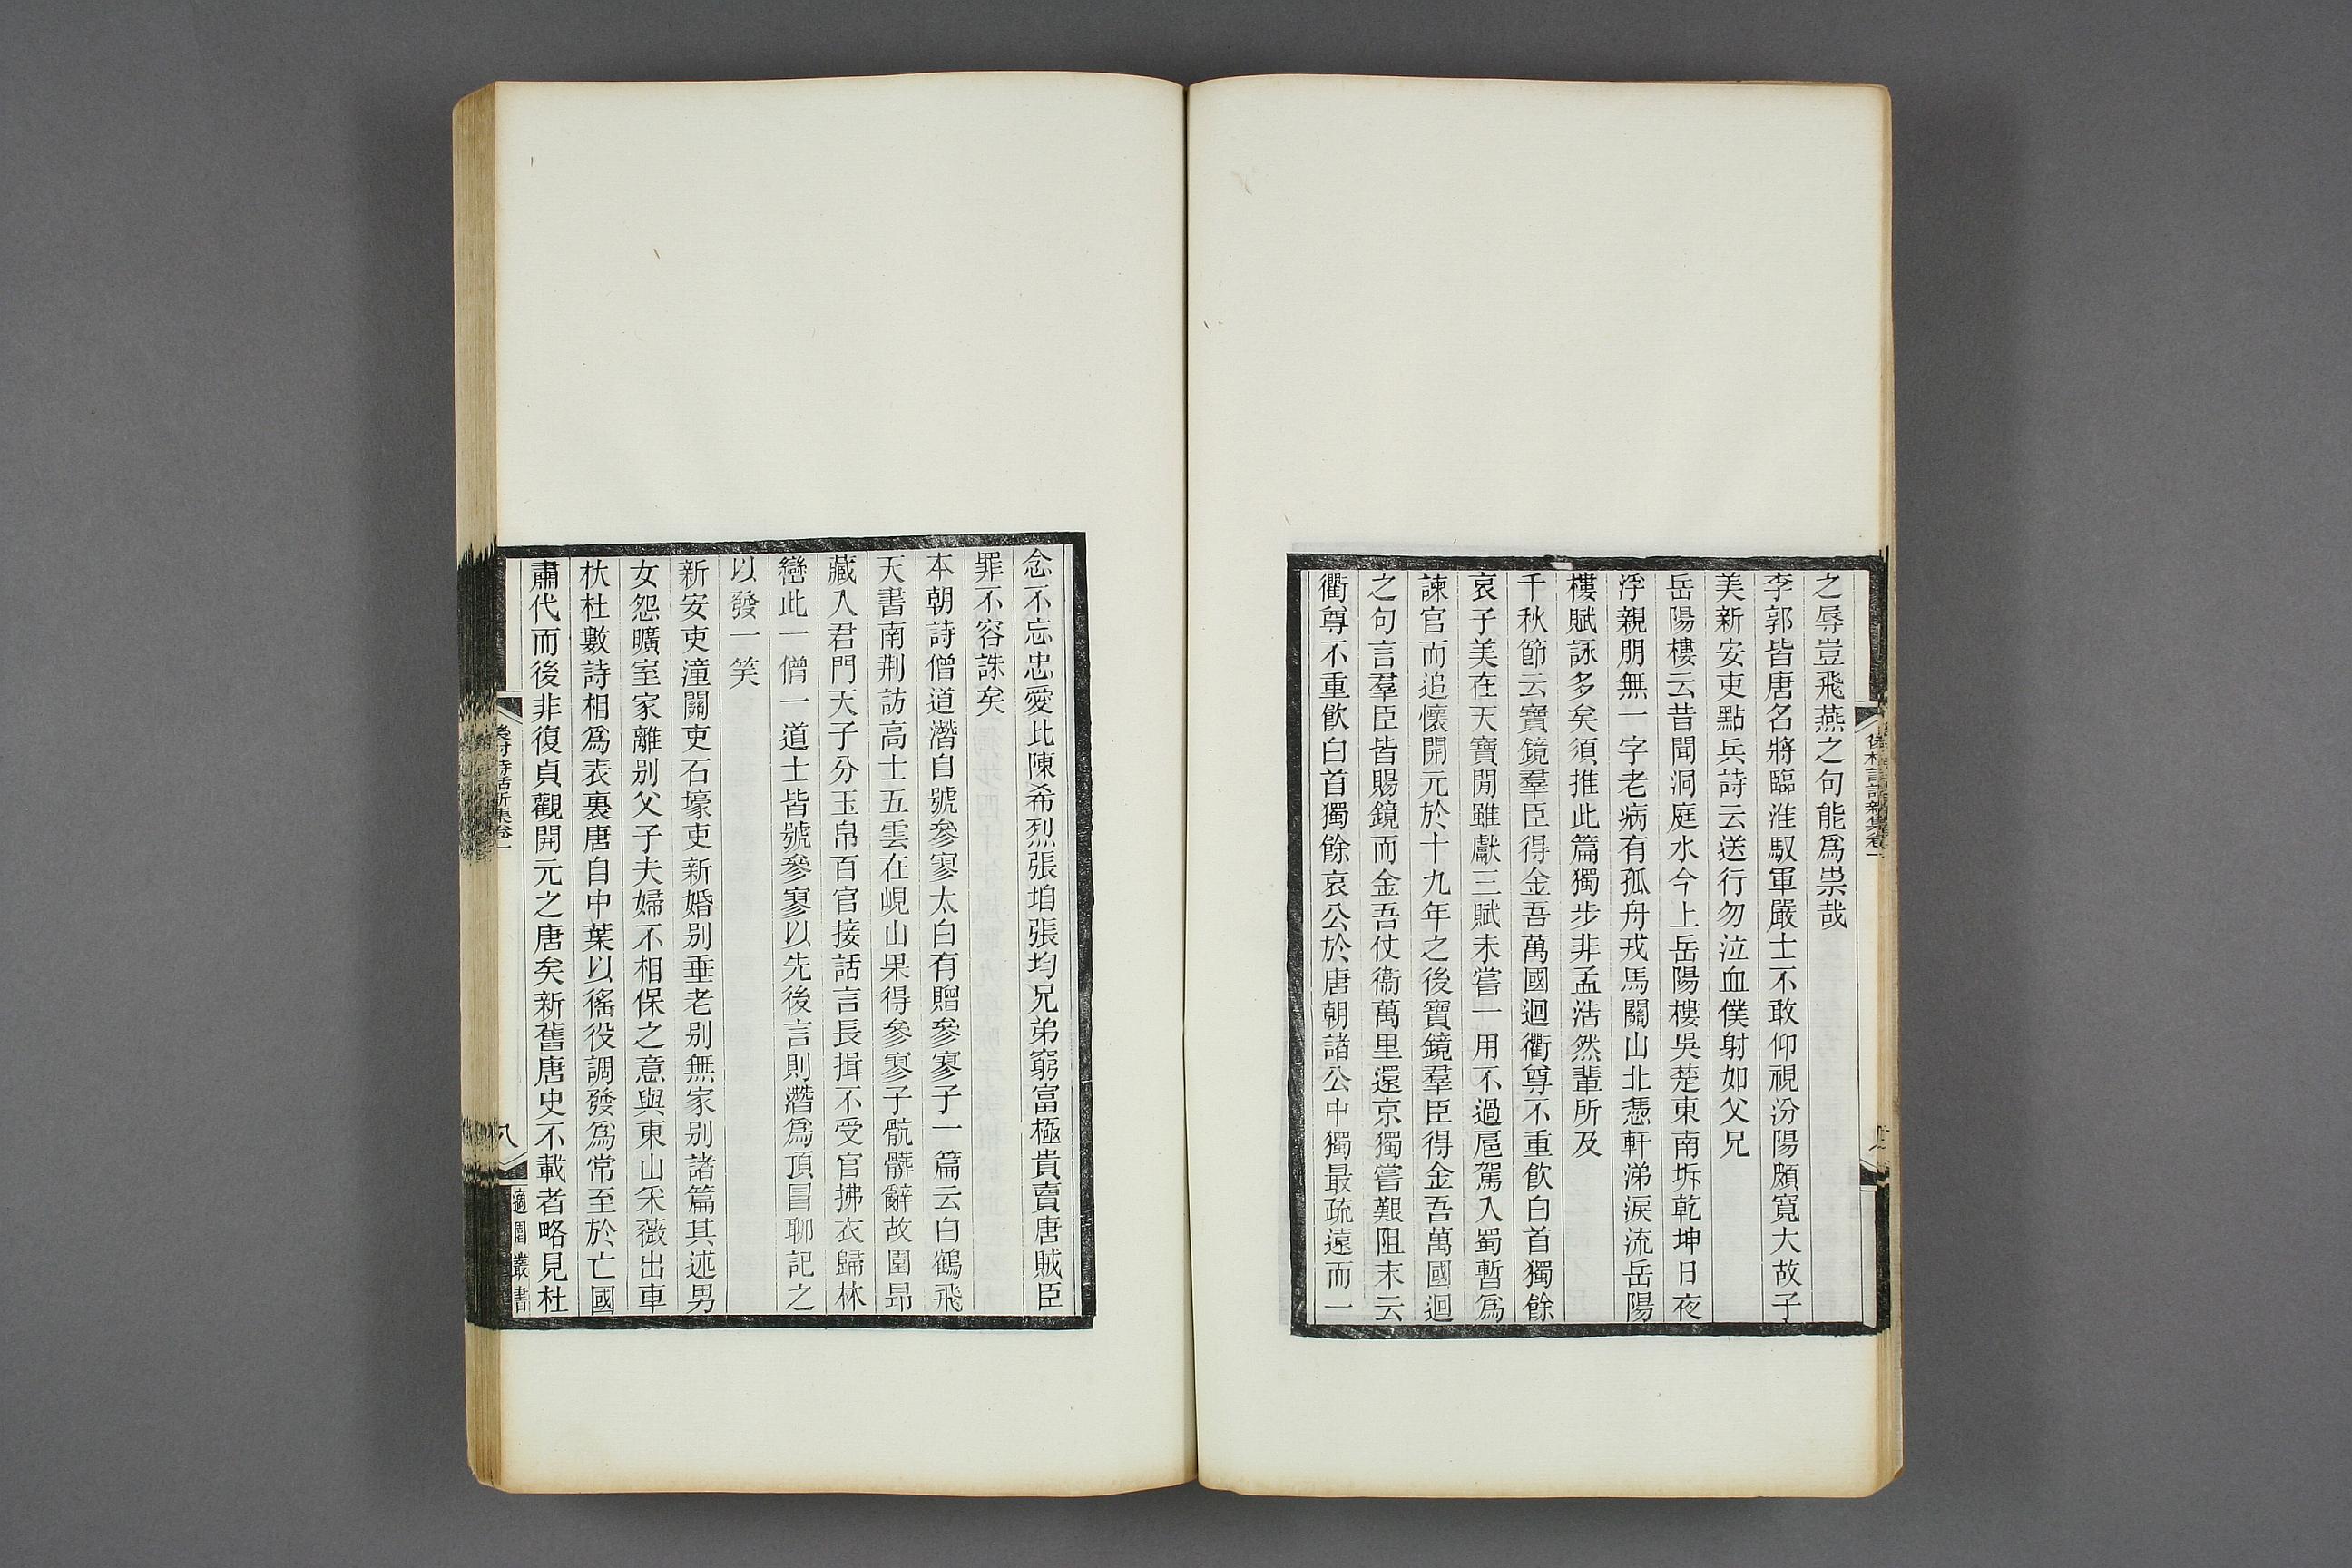 之辱豈飛燕之句能爲祟哉
李郭皆唐名將臨淮馭軍嚴士不敢仰視汾陽頗寬大故子
美新安吏點兵詩云送行勿泣血僕射如父兄
岳陽樓云昔聞洞庭水今上岳陽樓吳楚東南坼乾坤日夜
浮親朋無一字老病有孤舟戎馬關山北憑軒涕淚流岳陽
樓賦詠多矣須推此篇獨步非孟浩然輩所及
千秋節云寶鏡羣臣得金吾萬國迴衢尊不重飲白首獨餘
哀子美在天寶閒雖獻三賦未嘗一用不過扈駕入蜀暫爲
諫官而追懷開元於十九年之後寶鏡羣臣得金吾萬國迴
之句言羣臣皆賜鏡而金吾仗衞萬里還京獨嘗艱阻末云
衢尊不重飲白首獨餘哀公於唐朝諸公中獨最疏遠而一
念不忘忠愛比陳希烈張垍張均兄弟窮富極貴賣唐賊臣
罪不容誅矣
本朝詩僧道潛自號參寥太白有贈參寥子一篇云白鶴飛
天書南荆訪高士五雲在峴山果得參寥子骯髒辭故園昂
藏入君門天子分玉帛百官接話言長揖不受官拂衣歸林
巒此一僧一道士皆號參寥以先後言則潛爲頂冒聊記之
以發一笑
新安吏潼關吏石壕吏新婚别垂老别無家别諸篇其述男
女怨曠室家離别父子夫婦不相保之意與東山采薇出車
杕杜數詩相爲表裏唐自中葉以徭役調發爲常至於亡國
肅代而後非復貞觀開元之唐矣新舊唐史不載者略見杜
後村詩話新集卷一
八
適園叢書